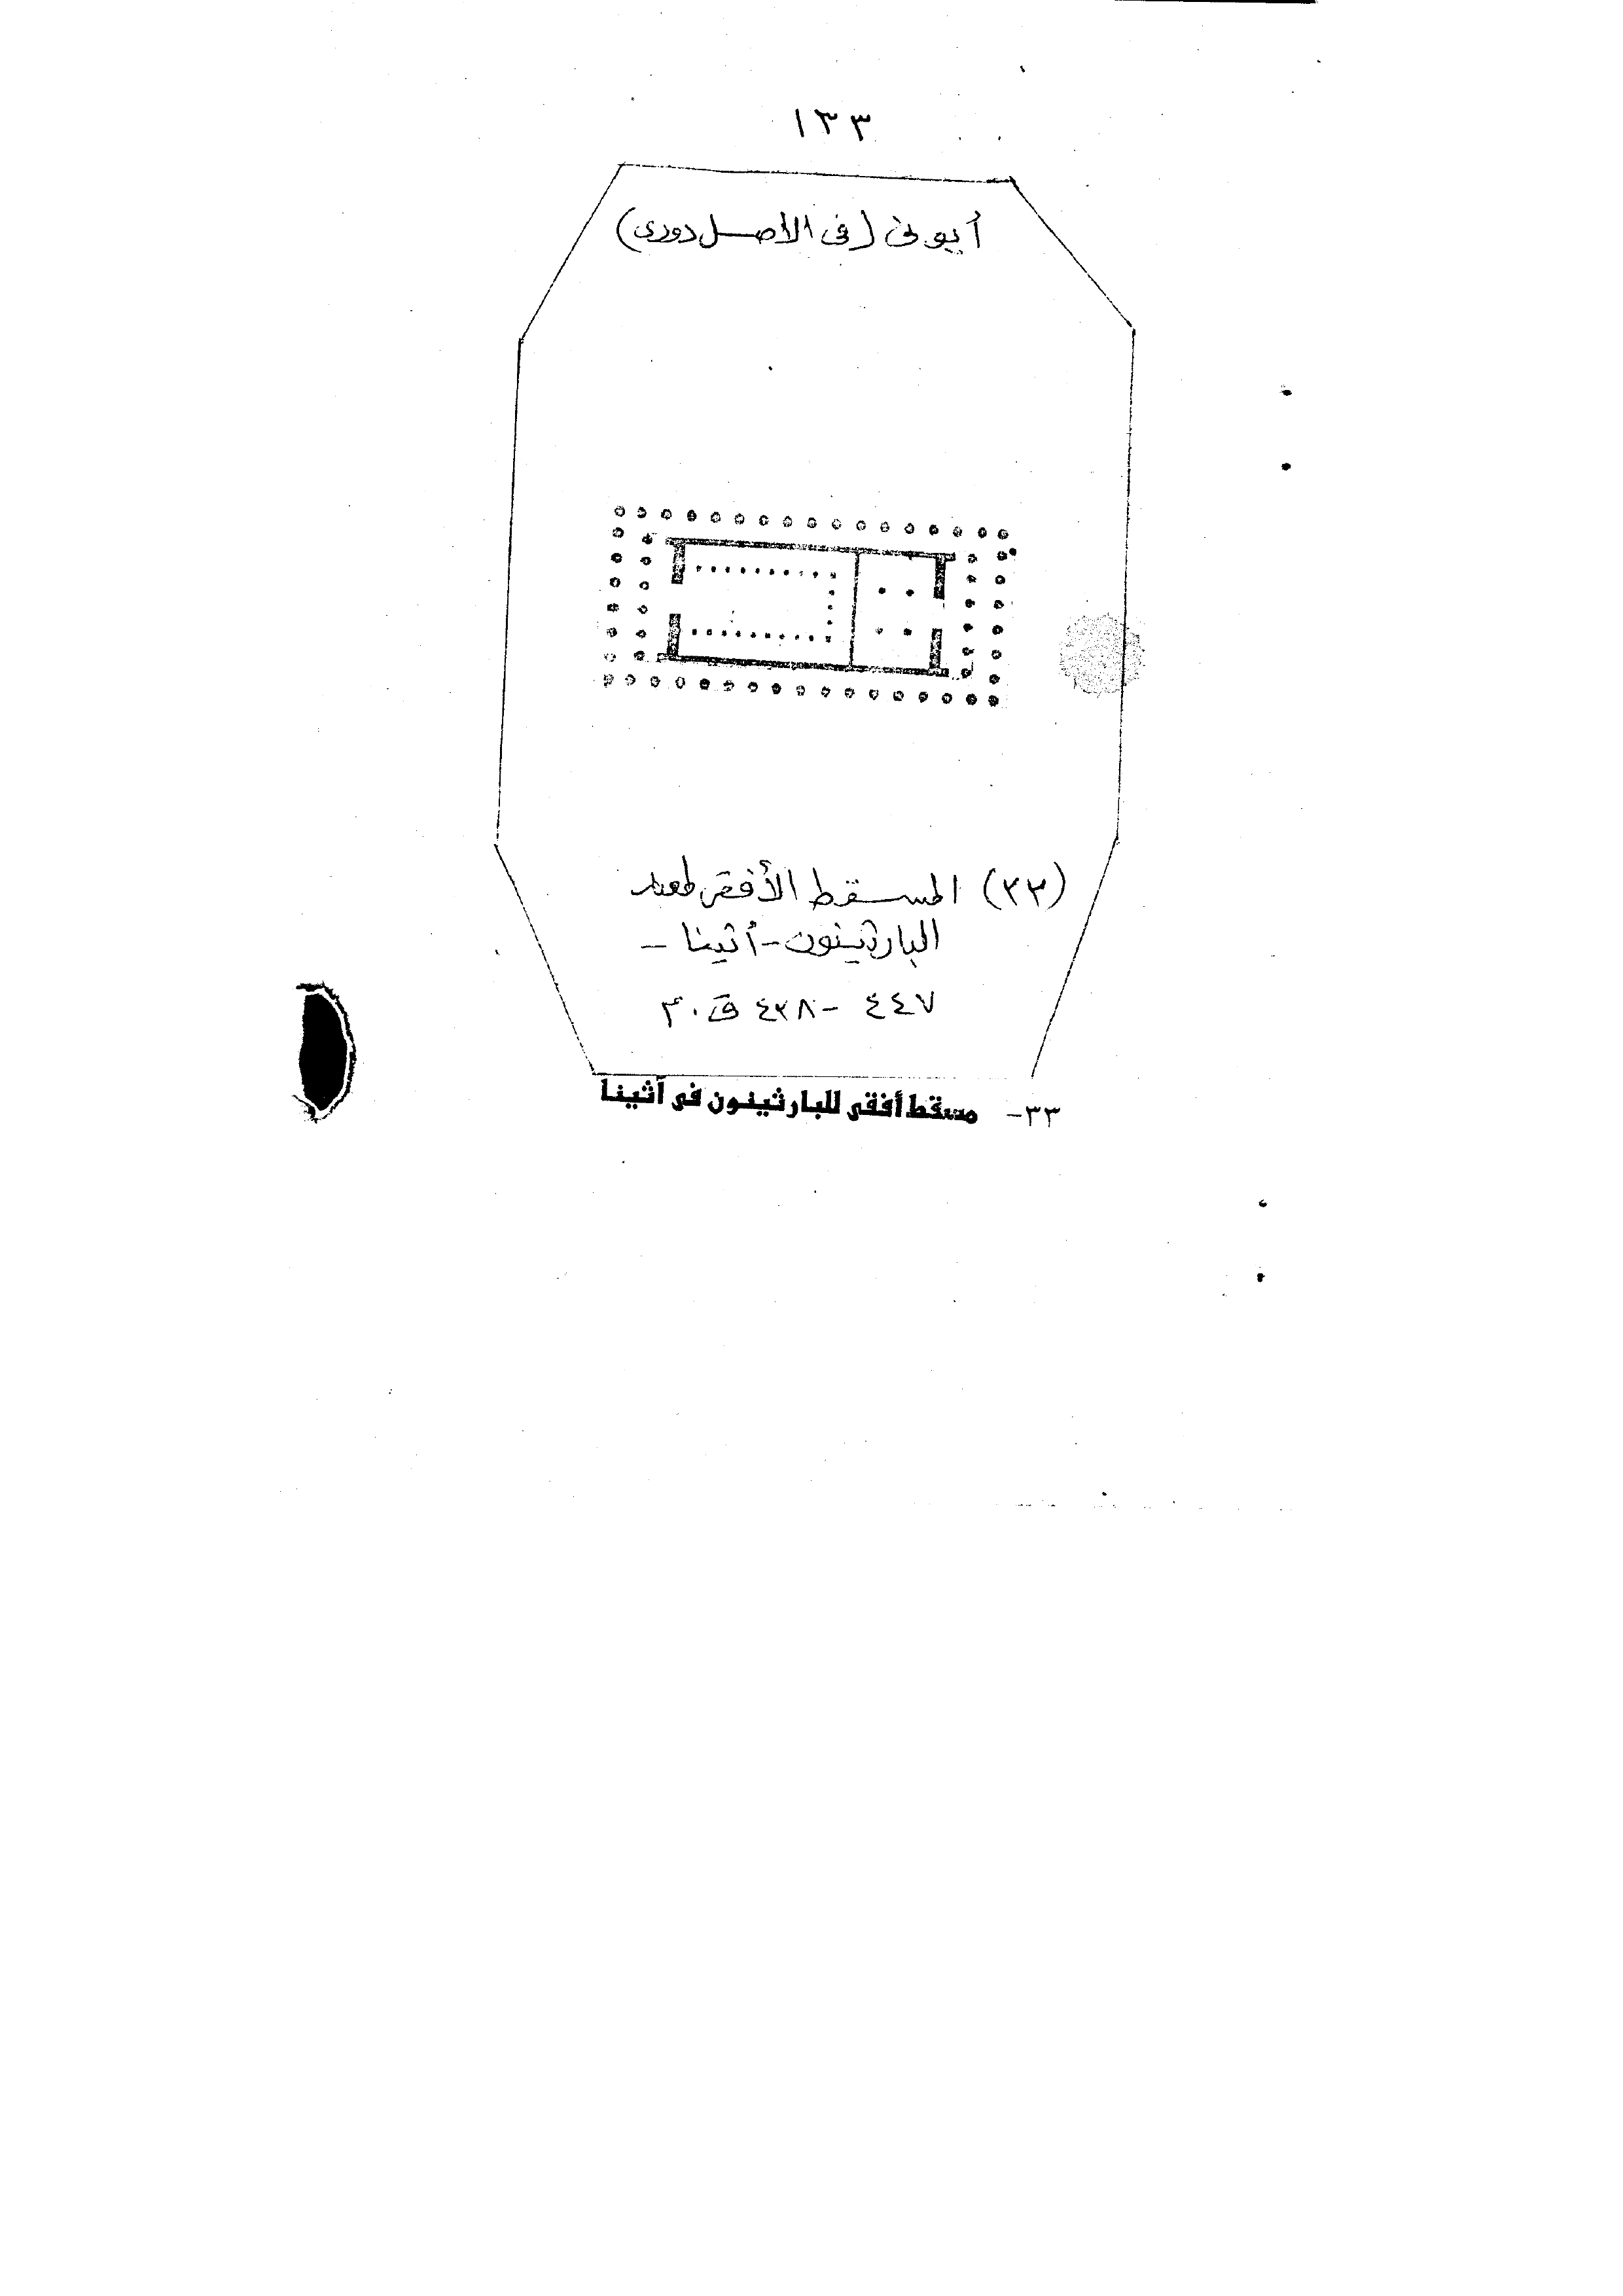 ١٣٣
أيونى (فى الأصل دورى)
(٣٣) المسقط الأفقى لمعبد
البارثينون - أثينا -
٤٤٧ - ٤٣٨ ق.م
٣٣- مسقط أفقى للبارثينون فى آثينا